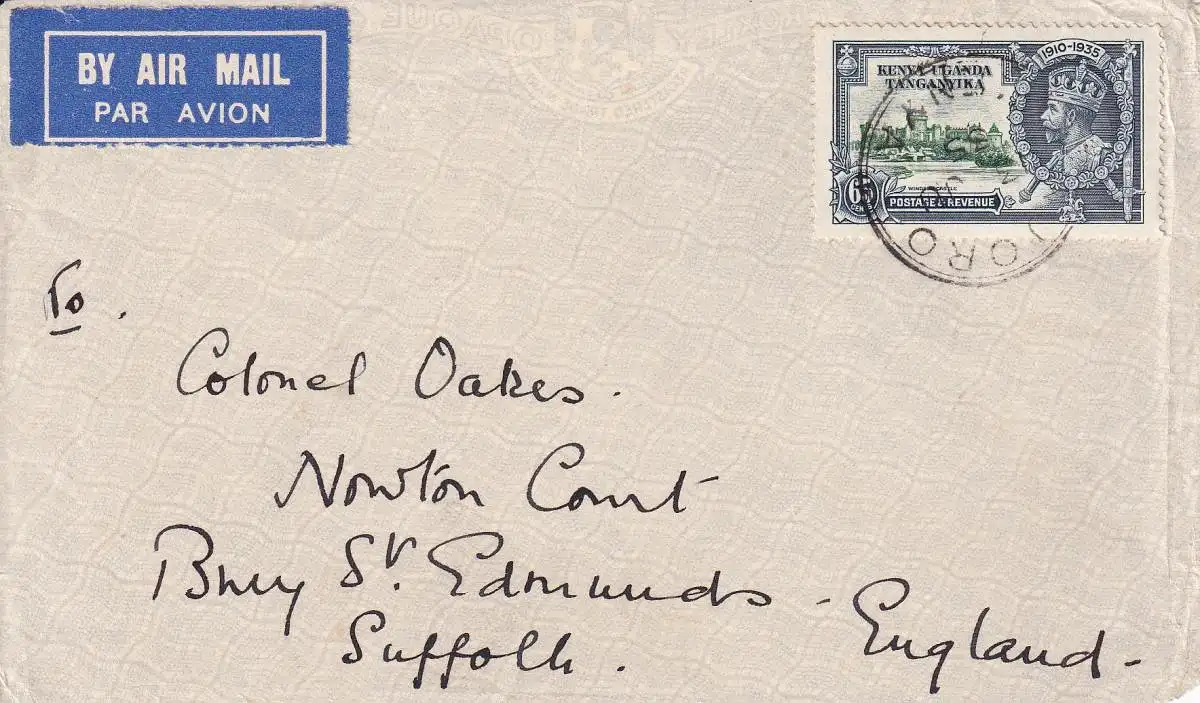 BY AIR MAIL
PAR AVION
1910-1935
KENYA UGANDA
TANGANYIKA
WINDSOR CASTLE
65
CENTS
POSTAGE & REVENUE
To.
Colonel Oakes.
Nowton Court
Bury St. Edmunds - England -
Suffolk.